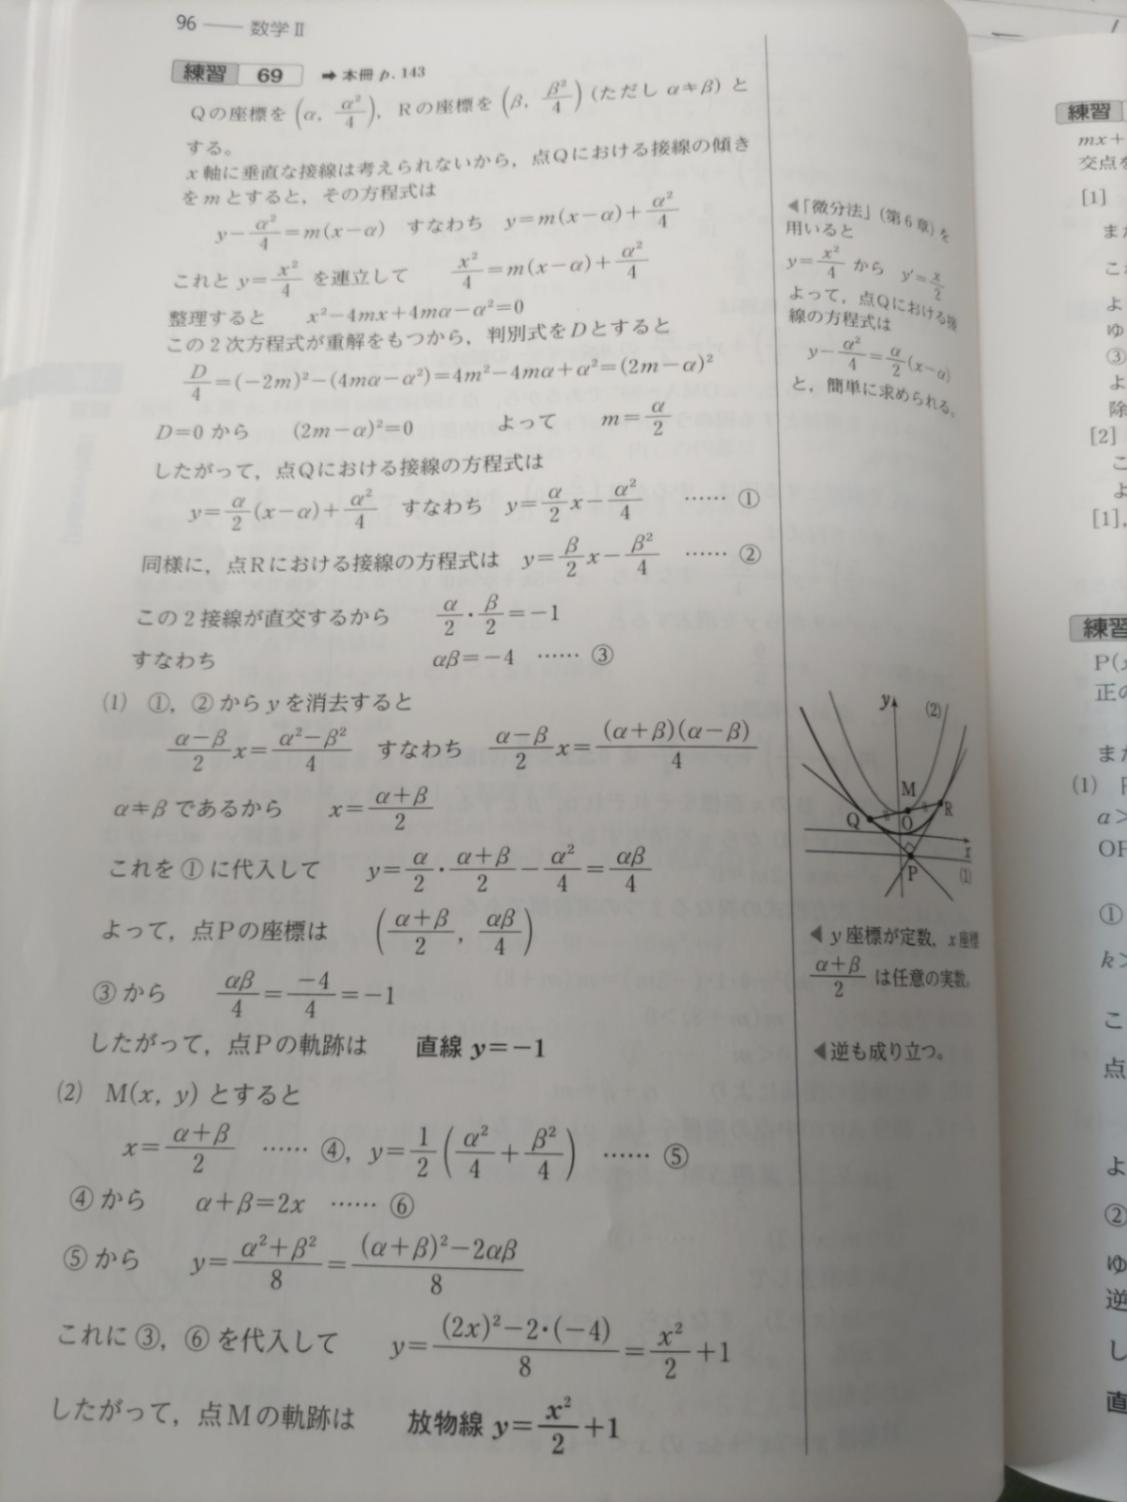 96 —— 数学Ⅱ
練習 69 ➡本冊 p. 143
Qの座標を (α, α²/4), Rの座標を (β, β²/4) (ただし α≠β) と
する。
x 軸に垂直な接線は考えられないから，点Qにおける接線の傾き
を m とすると，その方程式は
y−α²/4=m(x−α) すなわち y=m(x−α)+α²/4
これと y=x²/4 を連立して x²/4=m(x−α)+α²/4
整理すると x²−4mx+4mα−α²=0
この2次方程式が重解をもつから，判別式をDとすると
D/4=(−2m)²−(4mα−α²)=4m²−4mα+α²=(2m−α)²
D=0 から (2m−α)²=0 よって m=α/2
したがって，点Qにおける接線の方程式は
y=α/2(x−α)+α²/4 すなわち y=α/2 x−α²/4 …… ①
同様に，点Rにおける接線の方程式は y=β/2 x−β²/4 …… ②
この2接線が直交するから α/2・β/2=−1
すなわち αβ=−4 …… ③
(1) ①，②からyを消去すると
(α−β)/2 x=(α²−β²)/4 すなわち (α−β)/2 x=(α+β)(α−β)/4
α≠β であるから x=(α+β)/2
これを①に代入して y=α/2・(α+β)/2−α²/4=αβ/4
よって，点Pの座標は ((α+β)/2, αβ/4)
③から αβ/4=−4/4=−1
したがって，点Pの軌跡は 直線 y=−1
(2) M(x, y) とすると
x=(α+β)/2 …… ④, y=1/2(α²/4+β²/4) …… ⑤
④から α+β=2x …… ⑥
⑤から y=(α²+β²)/8=((α+β)²−2αβ)/8
これに③，⑥を代入して y=((2x)²−2・(−4))/8=x²/2+1
したがって，点Mの軌跡は 放物線 y=x²/2+1
◀「微分法」(第6章)を
用いると
y=x²/4 から y′=x/2
よって，点Qにおける接
線の方程式は
y−α²/4=α/2(x−α)
と，簡単に求められる。
y
(2)
M
Q
R
O
x
P
(1)
◀ y座標が定数，x座標
(α+β)/2 は任意の実数。
◀逆も成り立つ。
練習
mx+
交点を
[1]
また
よ
ゆ
③
よ
除
[2]
こ
よ
[1],
練習
P(x
正の
また
(1)
a>
OP
①
k>
こ
点
よ
②
ゆ
逆
し
直